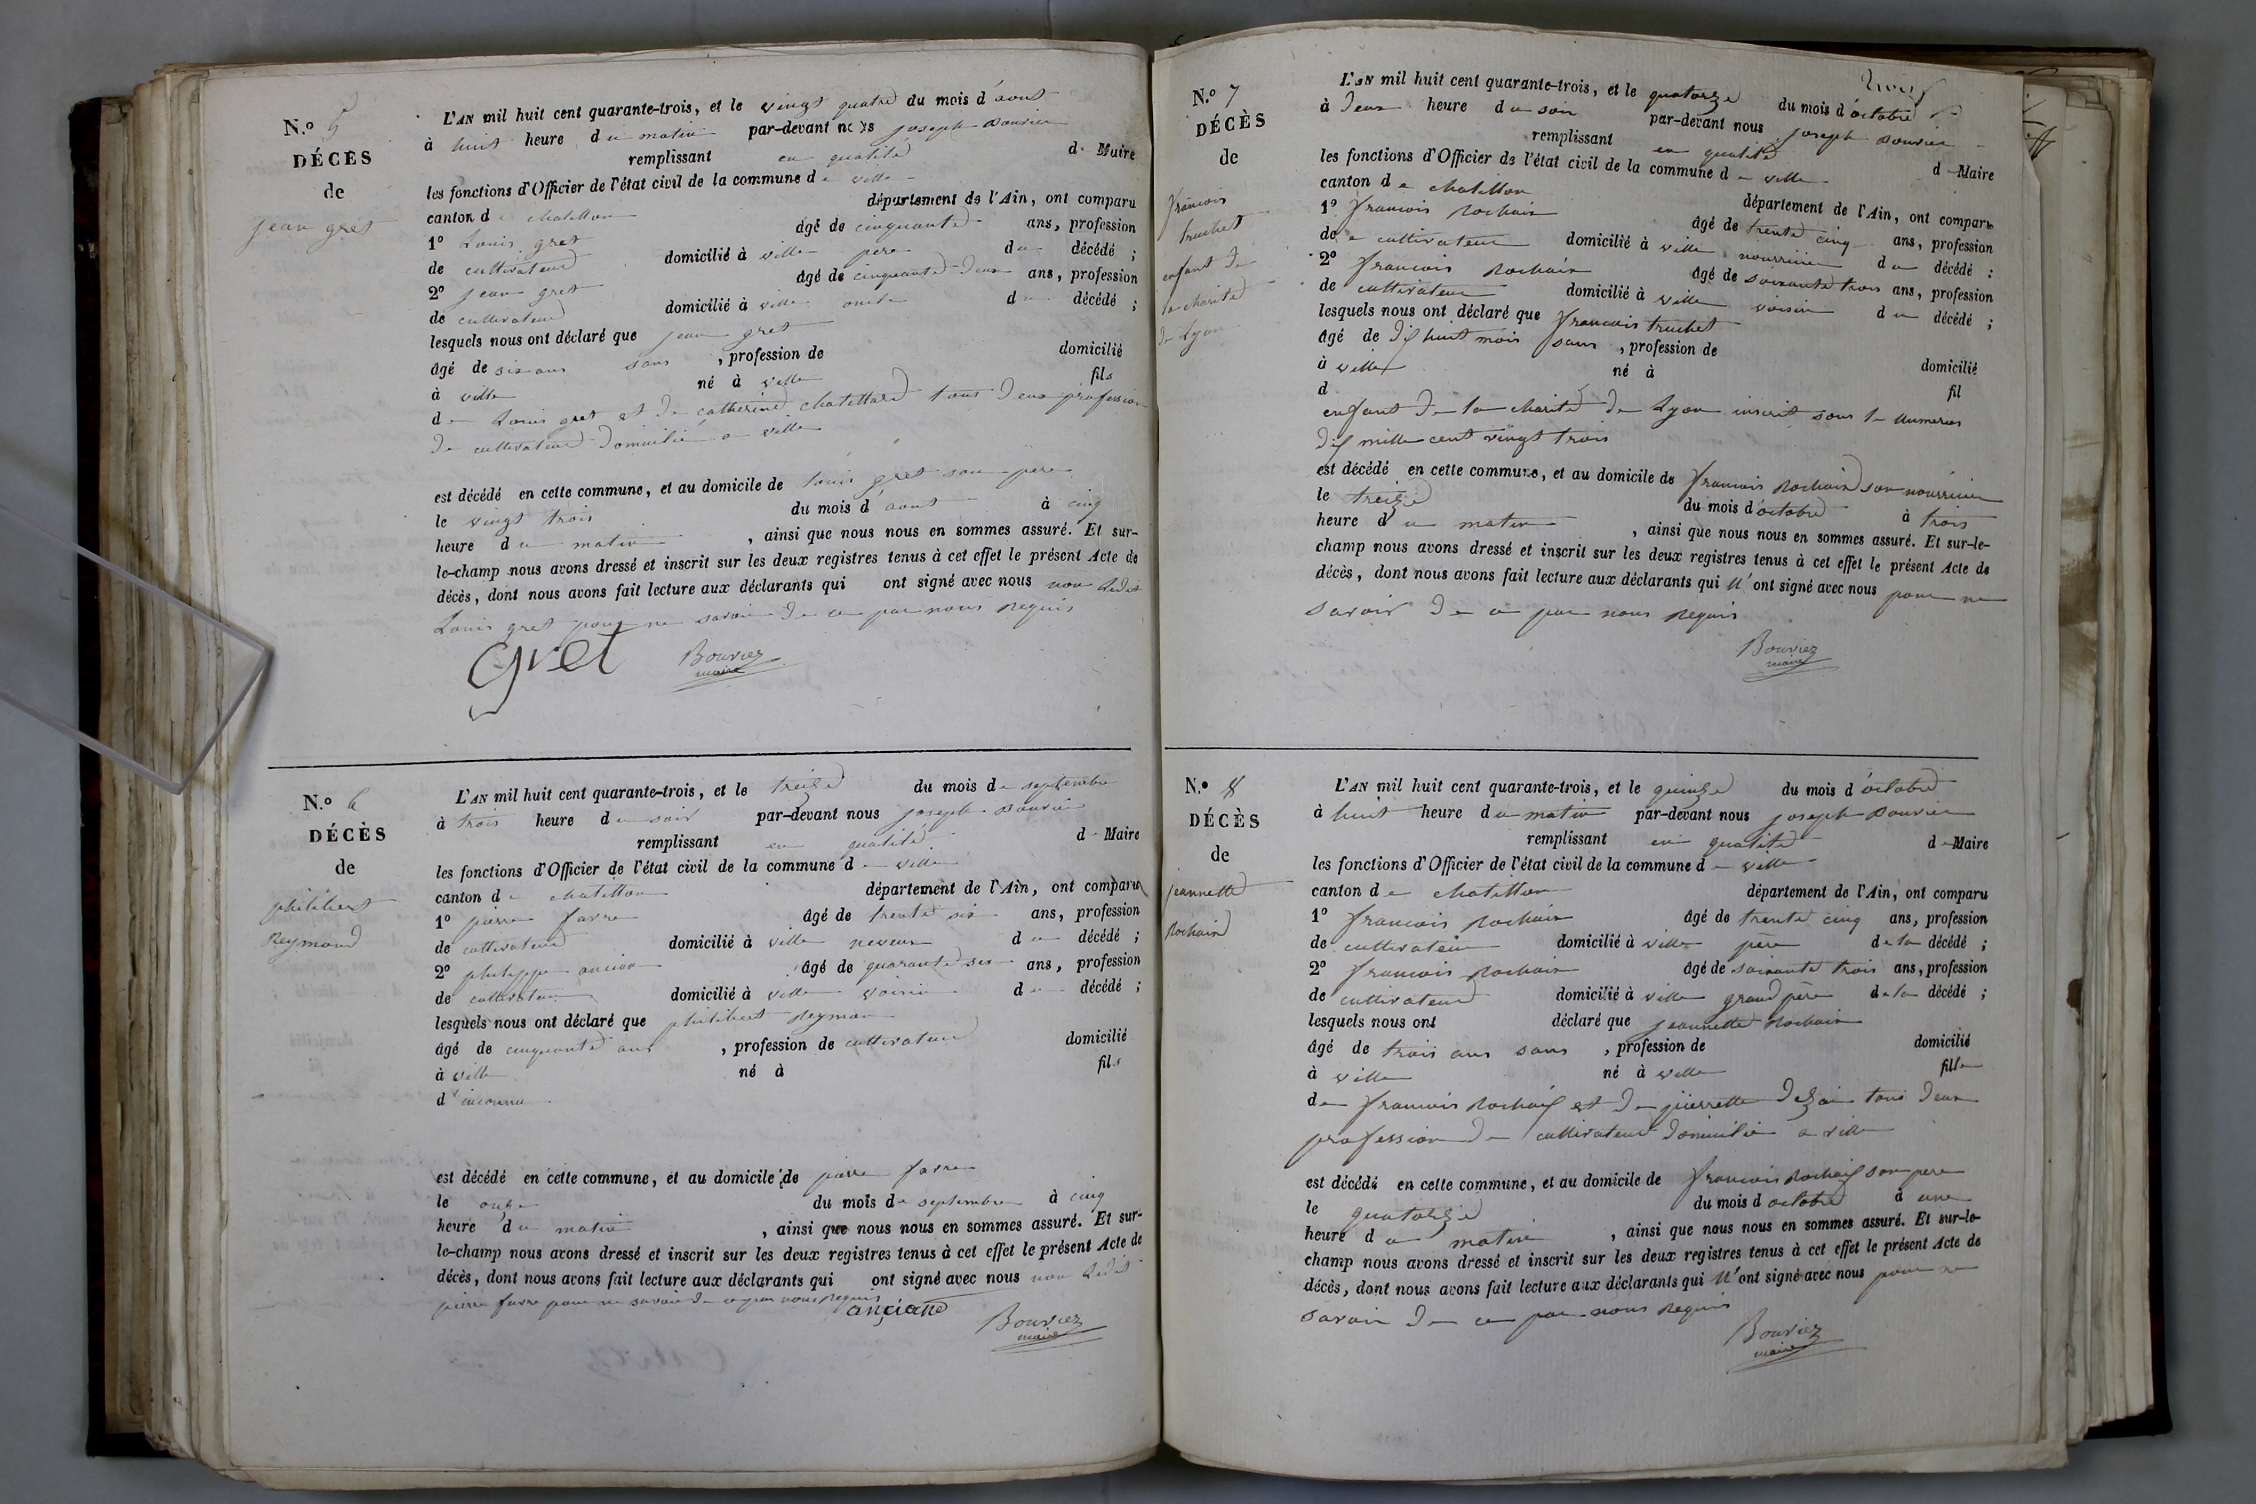 N.º 5
DÉCÈS
de
jean gret
L'AN mil huit cent quarante-trois, et le vingt quatre du mois d'aout
à huit heure du matin par-devant nous joseph Bouvier
remplissant en qualité de Maire
les fonctions d'Officier de l'état civil de la commune de ville
canton de chatillon département de l'Ain, ont comparu
1º Louis gret âgé de cinquante ans, profession
de cultivateur domicilié à ville pere du décédé ;
2º jean gret âgé de cinquante deux ans, profession
de cultivateur domicilié à ville oncle du décédé ;
lesquels nous ont déclaré que jean gret
âgé de six ans sans , profession de domicilié
à ville né à ville fils
de Louis gret et de catherine chatellard tous deux profession
de cultivateur domicilié a ville
est décédé en cette commune, et au domicile de louis gret son pere
le vingt trois du mois d'aout à cinq
heure du matin , ainsi que nous nous en sommes assuré. Et sur-
le-champ nous avons dressé et inscrit sur les deux registres tenus à cet effet le présent Acte de
décès, dont nous avons fait lecture aux déclarants qui ont signé avec nous non ledit
Louis gret pour ne savoir de ce par nous Requis
gret Bouvier
maire
N.º 6
DÉCÈS
de
philibert
Reymond
L'AN mil huit cent quarante-trois, et le treize du mois de septembre
à trois heure du soir par-devant nous joseph Bouvier
remplissant en qualité de Maire
les fonctions d'Officier de l'état civil de la commune de ville
canton de chatillon département de l'Ain, ont comparu
1º pierre favre âgé de trente six ans, profession
de cultivateur domicilié à ville neveux du décédé ;
2º philippe ancian âgé de quarante six ans, profession
de cultivateur domicilié à ville voisin du décédé ;
lesquels nous ont déclaré que philibert Reymon
âgé de cinquante ans , profession de cultivateur domicilié
à ville né à fils
d'inconnu
est décédé en cette commune, et au domicile de pierre favre
le onze du mois de septembre à cinq
heure du matin , ainsi que nous nous en sommes assuré. Et sur-
le-champ nous avons dressé et inscrit sur les deux registres tenus à cet effet le présent Acte de
décès, dont nous avons fait lecture aux déclarants qui ont signé avec nous non ledit
pierre favre pour ne savoir de ce par nous Requis
Bouvier
maire
N.º 7
DÉCÈS
de
francois
truchet
enfant de
la charité
de Lyon
L'AN mil huit cent quarante-trois, et le quatorze du mois d'octobre
à deux heure du soir par-devant nous joseph Bouvier
remplissant en qualité de Maire
les fonctions d'Officier de l'état civil de la commune de ville
canton de chatillon département de l'Ain, ont comparu
1º francois Rochaix âgé de trente cinq ans, profession
de cultivateur domicilié à ville nourricier du décédé ;
2º francois Rochaix âgé de soixante trois ans, profession
de cultivateur domicilié à ville voisin du décédé ;
lesquels nous ont déclaré que francois truchet
âgé de dix huit mois sans , profession de domicilié
à ville né à fil
d
enfant de la charité de Lyon inscrit sous le numeros
dix mille cent vingt trois
est décédé en cette commune, et au domicile de francois Rochaix son nourricier
le treize du mois d'octobre à trois
heure du matin , ainsi que nous nous en sommes assuré. Et sur-le-
champ nous avons dressé et inscrit sur les deux registres tenus à cet effet le présent Acte de
décès, dont nous avons fait lecture aux déclarants qui n'ont signé avec nous pour ne
savoir de ce par nous Requis
Bouvier
maire
N.º 8
DÉCÈS
de
jeannette
Rochaix
L'AN mil huit cent quarante-trois, et le quinze du mois d'octobre
à huit heure du matin par-devant nous joseph Bouvier
remplissant en qualité de Maire
les fonctions d'Officier de l'état civil de la commune de ville
canton de chatillon département de l'Ain, ont comparu
1º francois Rochaix âgé de trente cinq ans, profession
de cultivateur domicilié à ville père de la décédé ;
2º francois Rochaix âgé de soixante trois ans, profession
de cultivateur domicilié à ville grand père de la décédé ;
lesquels nous ont déclaré que jeannette Rochaix
âgé de trois ans sans , profession de domicilié
à ville né à ville fille
de francois Rochaix et de pierrette tous deux
profession de cultivateur domicilié a ville
est décédé en cette commune, et au domicile de francois Rochaix son pere
le quatorze du mois d octobre à une
heure du matin , ainsi que nous nous en sommes assuré. Et sur-le-
champ nous avons dressé et inscrit sur les deux registres tenus à cet effet le présent Acte de
décès, dont nous avons fait lecture aux déclarants qui n'ont signé avec nous pour ne
savoir de ce par nous Requis
Bouvier
maire